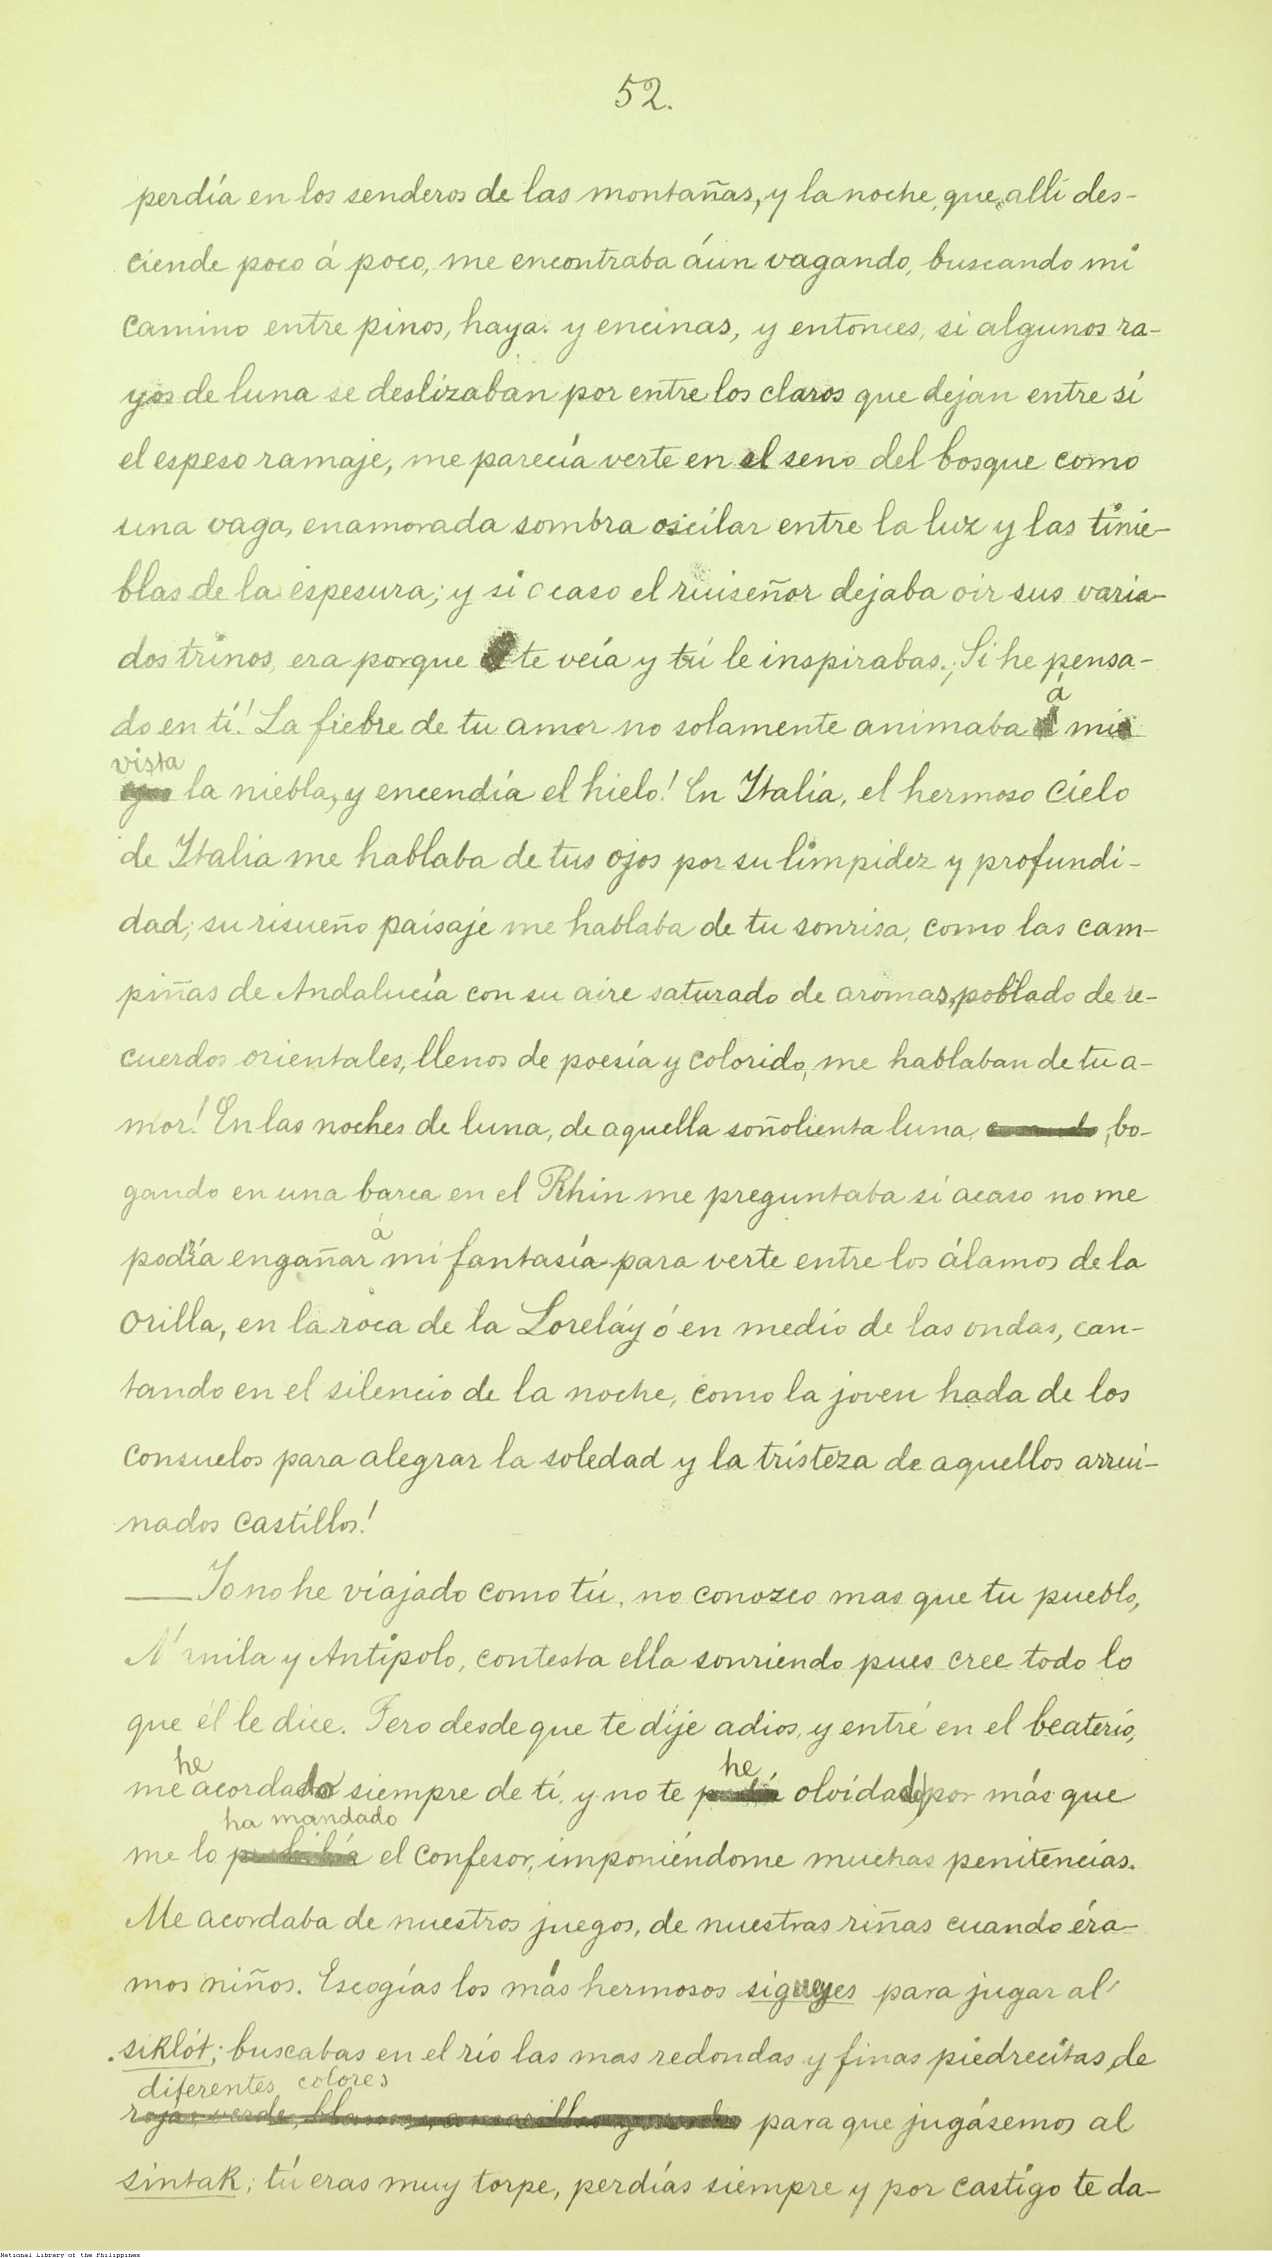 52.
perdía en los senderos de las montañas, y la noche, que, allí des-
ciende poco á poco, me encontraba áun vagando, buscando mi
camino entre pinos, haya. y encinas, y entonces, si algunos ra-
yos de luna se deslizaban por entre los claros que dejan entre sí
el espeso ramaje, me parecía verte en el seno del bosque como
una vaga, enamorada sombra oscilar entre la luz y las tinie-
blas de la espesura; y si acaso el ruiseñor dejaba oir sus varia-
dos trinos, era porque te veía y tú le inspirabas. ¡Si he pensa-
do en tí! La fiebre de tu amor no solamente animaba á mi
vista
la niebla, y encendía el hielo! En Italia, el hermoso cielo
de Italia me hablaba de tus ojos por su limpidez y profundi-
dad; su risueño paisaje me hablaba de tu sonrisa, como las cam-
piñas de Andalucía con su aire saturado de aromas, poblado de re-
cuerdos orientales, llenos de poesía y colorido, me hablaban de tu a-
mor! En las noches de luna, de aquella soñolienta luna, bo-
gando en una barca en el Rhin me preguntaba si acaso no me
podría engañar á mi fantasía para verte entre los álamos de la
orilla, en la roca de la Loreláy ó en medio de las ondas, can-
tando en el silencio de la noche, como la joven hada de los
consuelos para alegrar la soledad y la tristeza de aquellos arrui-
nados castillos!
— Yo no he viajado como tú, no conozco mas que tu pueblo,
Manila y Antipolo, contesta ella sonriendo pues cree todo lo
que él le dice. Pero desde que te dije adios, y entré en el beaterio,
me he acordado siempre de tí, y no te he olvidado por más que
ha mandado
me lo el confesor, imponiéndome muchas penitencias.
Me acordaba de nuestros juegos, de nuestras riñas cuando éra-
mos niños. Escogías los más hermosos sigueyes para jugar al
siklót; buscabas en el río las mas redondas y finas piedrecitas, de
diferentes colores
para que jugásemos al
sintak; tú eras muy torpe, perdías siempre y por castigo te da-
National Library of the Philippines